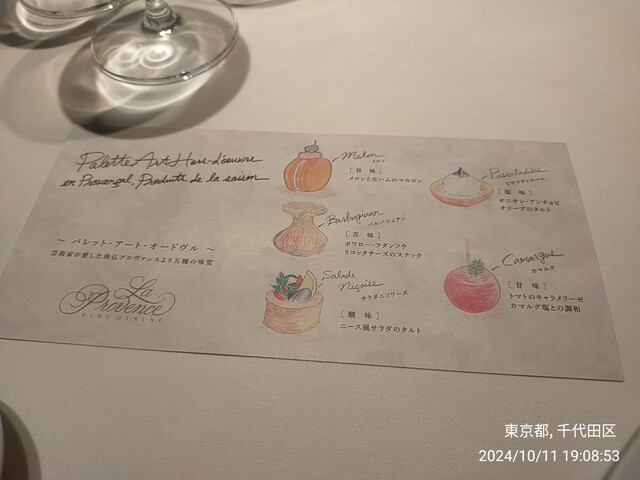 Palette Art Hors-d'œuvre
en Provençal, Produits de la saison
～ パレット・アート・オードヴル ～
芸術家が愛した南仏プロヴァンスより五種の味覚
La
Provence
FINE DINING
Melon
メロン
[旨 味]
メロンと生ハムのマカロン
Barbagiuan
バルバジュアン
[苦 味]
ポワロー・フダンソウ
リコッタチーズのスナック
Salade
Niçoise
サラダニソワーズ
[酸 味]
ニース風サラダのタルト
Pissaladière
ピサラディエール
[塩 味]
オニオン・アンチョビ
オリーブのタルト
Camargue
カマルグ
[甘 味]
トマトのキャラメリーゼ
カマルグ塩との調和
東京都, 千代田区
2024/10/11 19:08:53